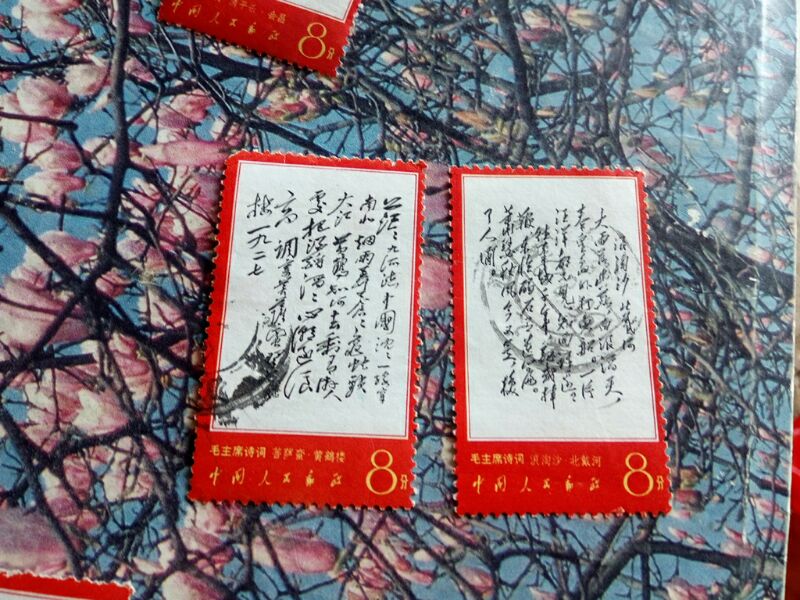 清平乐·会昌
中国人民邮政
8分
茫茫九派流中國沉沉一線穿
南北煙雨莽蒼蒼龜蛇鎖
大江黃鶴知何去剩有遊人
處把酒酹滔滔心潮逐浪
高 調寄菩薩蠻
樓 一九二七
毛主席诗词 菩萨蛮·黄鹤楼
中国人民邮政
8分
浪淘沙 北戴河
大雨落幽燕白浪滔天
秦皇島外打魚船一片
汪洋都不見知向誰邊
往事越千年魏武揮
鞭東臨碣石有遺篇
蕭瑟秋風今又是換
了人間
毛主席诗词 浪淘沙·北戴河
中国人民邮政
8分